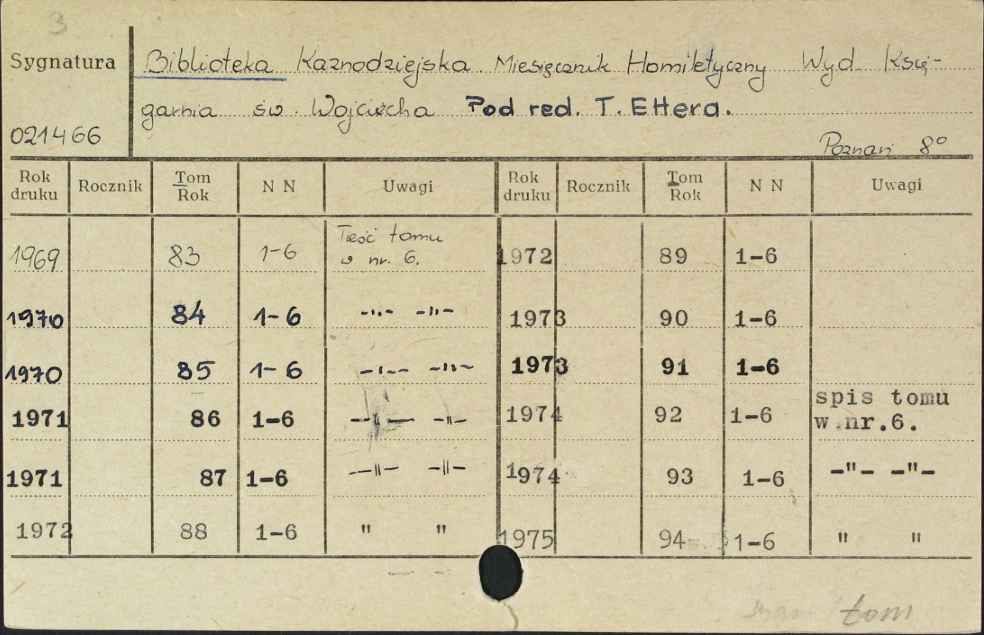 3
Sygnatura
Biblioteka Kaznodziejska. Miesięcznik Homiletyczny Wyd. Księ-
garnia św. Wojciecha Pod red. T. Ettera.
021466
Poznań 8°
Rok druku Rocznik Tom Rok N N Uwagi Rok druku Rocznik Tom Rok N N Uwagi
1969 83 1-6 Treść tomu w nr. 6. 1972 89 1-6
1970 84 1-6 -"- -"- 1973 90 1-6
1970 85 1-6 -"- -"- 1973 91 1-6
1971 86 1-6 -"- -"- 1974 92 1-6 spis tomu w nr.6.
1971 87 1-6 -"- -"- 1974 93 1-6 -"- -"-
1972 88 1-6 " " 1975 94 1-6 " "
tom